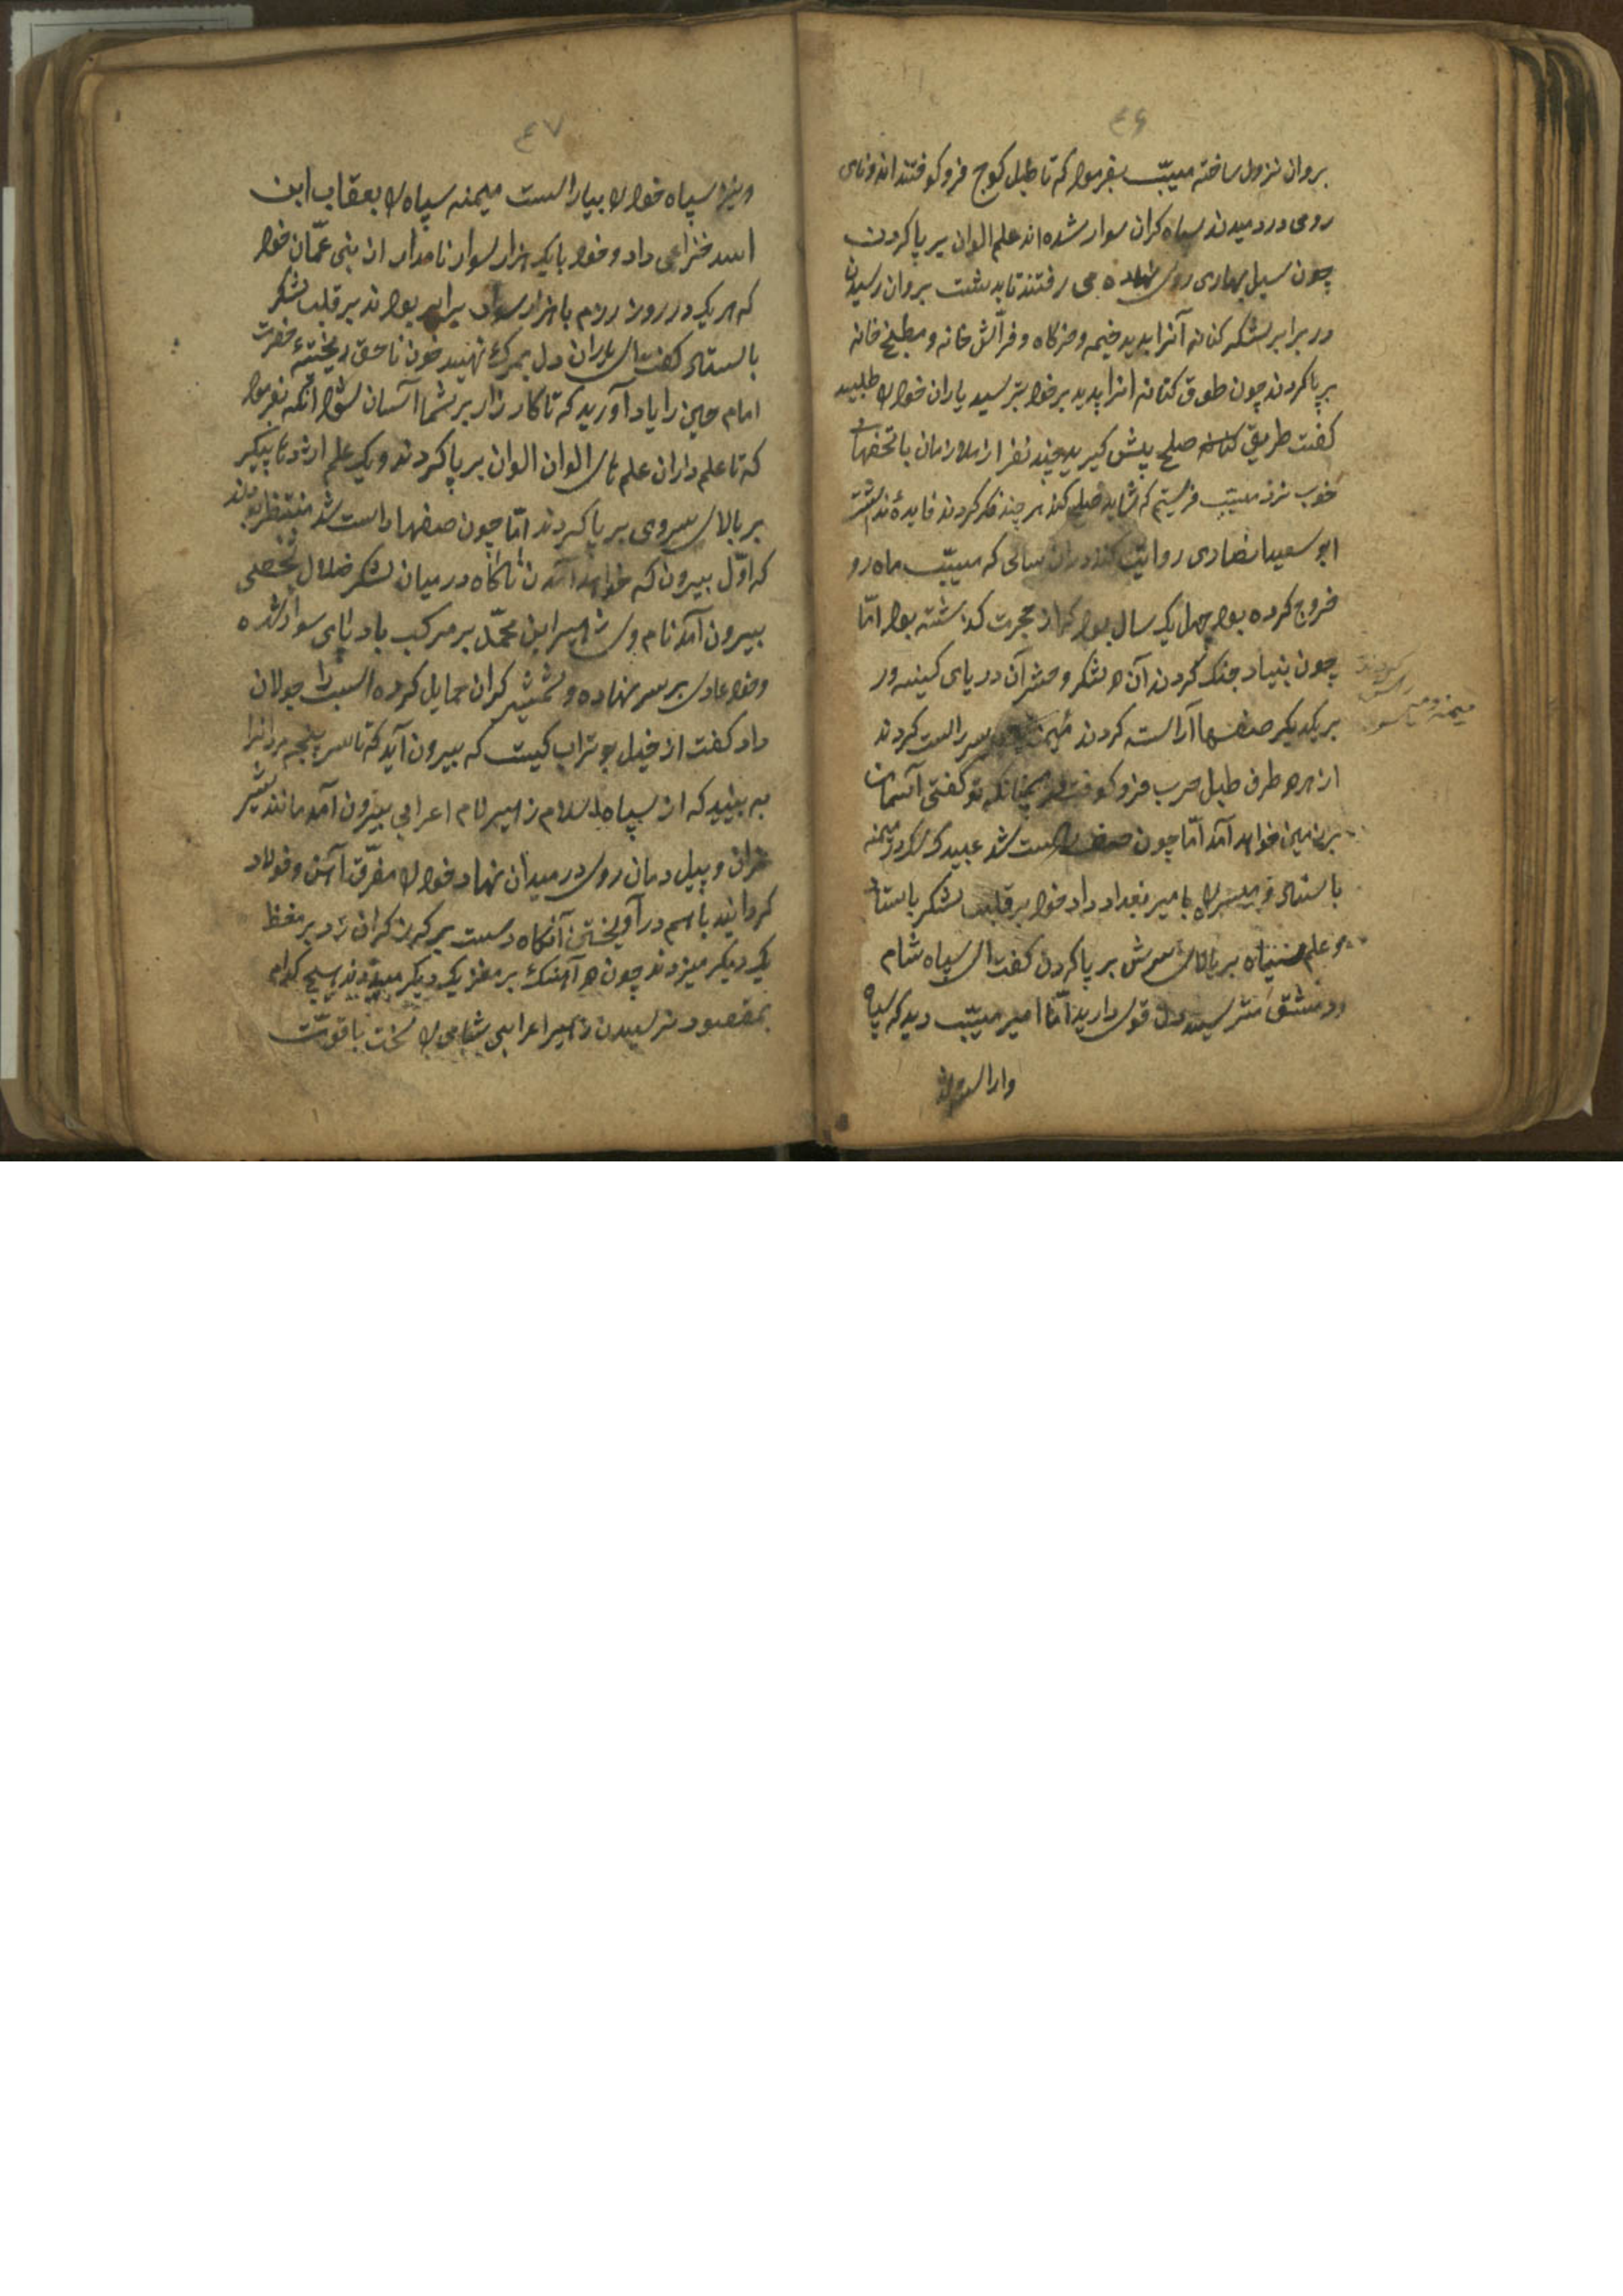 ٤٦
بروان نزول ساخته مسیّب بفرمود که تا طبل کوچ فرو کوفتند اند و نای
رومی در دمیدند سپاه کران سوار شده اند علم الوان بر پا کردن
چون سیل بهاری روی نهاده می رفتند تا بدشت بروان رسیدن
در برابر لشکر کنانه آنرا بدید خیمه و خرکاه و فرّاش خانه و مطبخ خانه
بر پا کردند چون طوق کنانه انرا پدید بر خود بترسید یاران خود را طلبید
کفت طریق صلح پیش کیرید چند نفر از ملازمان با تحفهای
خوب نزد مسیّب فرستیم که شاید صلح کند هر چند فکر کردند فایدهٔ نداشت
ابو سعید انصاری روایت کند در ان سالی که مسیّب ماه رو
خروج کرده بود چهل یک سال بود که از هجرت کذشته بود امّا
چون بنیاد جنک کردند آن دو لشکر و حشر آن دریای کینه ور
بر یکدیکر صفها آراسته کردند راست کردند
از هر دو طرف طبل حرب فرو کوفتند چنانکه تو کفتی آسمان
بر زمین خواهد آمد امّا چون صف راست شد عبید در میمنه
باستاد و میسره را بامیر بغداد داد خود بر قلب لشکر باستاد
و علم سیاه بر بالای سرش بر پا کردن کفت ای سپاه شام
و دمشق مترسید دل قوی دارید امّا امیر مسیّب دید که سپاه
کردند
راست
میمنه و میسره
٤٧
و نیز سپاه خود را بیاراست میمنه سپاه را بعقاب ابن
اسد خزاعی داد و خود با یک هزار سوار نامدار از بنی عمّان خود
که هر یک در روز رزم با هزار سوار برابر بودند بر قلب لشکر
باستاد کفت ای یاران دل بمرک نهید خون ناحق ریختهٔ حضرت
امام حسین را یاد آورید که تا کار زار بر شما آسان شود انکه بفرمود
که تا علم داران علم های الوان الوان بر پا کردند و یک علم اژدها پیکر
بر بالای سر وی بر پا کردند امّا چون صفها راست شد منتظر بودند
که اوّل بیرون که خواهد آمدن ناکاه در میان لشکر ضلال شخصی
بیرون آمد نام وی زهیر ابن محمّد بر مرکب باد پای سوار شده
و خود عادی بر سر نهاده و شمشیر کران حمایل کرده اسب را جولان
داد کفت از خیل بو تراب کیست که بیرون آید که تا سر پنجه مردانرا
به بیند که از سپاه اسلام زهیر نام اعرابی بیرون آمد مانند شیر
غران و پیل دمان روی در میدان نهاد خود را مغرّق آهن و فولاد
کردانید باهم در آویختن آنکاه دست بر کرز کران زد بر مغظ
یک دیکر میزدند چون دو آهنک بر مغز یک دیکر میزدند هیچ کدام
بمقصود نرسیدن زهیر اعرابی شامی را سخت با قوّت